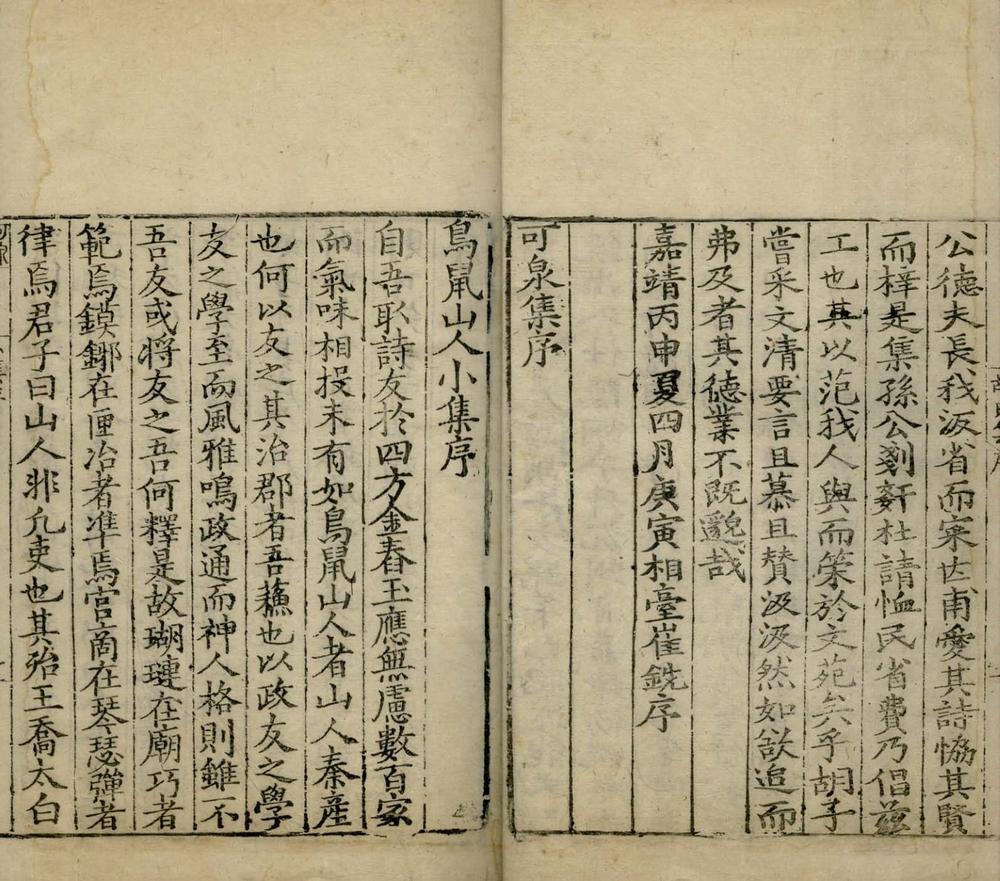 公德夫長我汳省而寀世甫愛其詩恊其賢
而梓是集孫公剗姧杜請恤民省費乃倡兹
工也其以范我人與而策於文苑矣乎胡子
嘗采文清要言且慕且賛汲汲然如欲追而
弗及者其德業不既邈哉
嘉靖丙申夏四月庚寅相臺崔銑序
可泉集序
鳥鼠山人小集序
自吾耴詩友於四方金舂玉應無慮數百家
而氣味相投未有如鳥鼠山人者山人秦産
也何以友之其治郡者吾蘓也以政友之學
友之學至而風雅鳴政通而神人格則雖不
吾友或將友之吾何釋是故瑚璉在廟巧者
範焉鏌鋣在匣冶者準焉宮商在琴瑟彈者
律焉君子曰山人非凡吏也其殆王喬太白